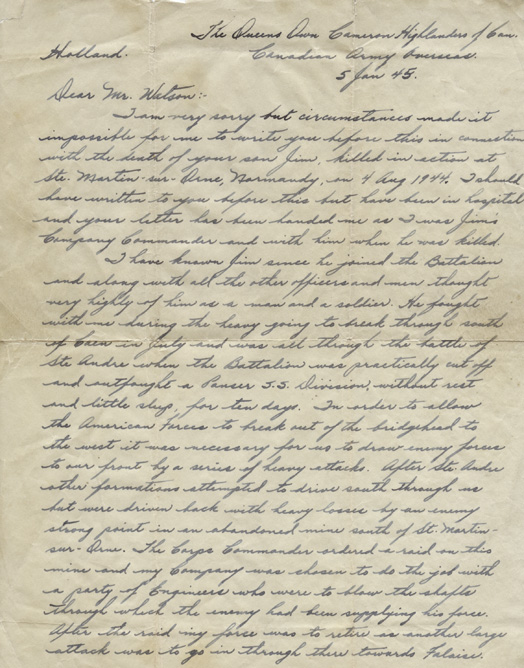 The Queens Own Cameron Highlanders of Can.
Holland. Canadian Army Overseas.
5 Jan 45.
Dear Mr. Watson:-
I am very sorry but circumstances made it
impossible for me to write you before this in connection
with the death of your son Jim, killed in action at
Ste. Martin-sur-Orne, Normandy, on 4 Aug 1944. I should
have written to you before this but have been in hospital
and your letter has been handed me as I was Jim's
Company Commander and with him when he was killed.
I have known Jim since he joined the Battalion
and along with all the other officers and men thought
very highly of him as a man and a soldier. He fought
with me during the heavy going to break through south
of Caen in July and was all through the battle of
Ste Andre when the Battalion was practically cut off
and outfought a Panser S.S. Division, without rest
and little sleep, for ten days. In order to allow
the American Forces to break out of the bridgehead to
the west it was necessary for us to draw enemy forces
to our front by a series of heavy attacks. After Ste. Andre
other formations attempted to drive south through us
but were driven back with heavy losses by an enemy
strong point in an abandoned mine south of St. Martin-
sur-Orne. The Corps Commander ordered a raid on this
mine and my Company was chosen to do the job with
a party of Engineers who were to blow the shafts
through which the enemy had been supplying his force.
After the raid my force was to retire as another large
attack was to go in through there towards Falaise.